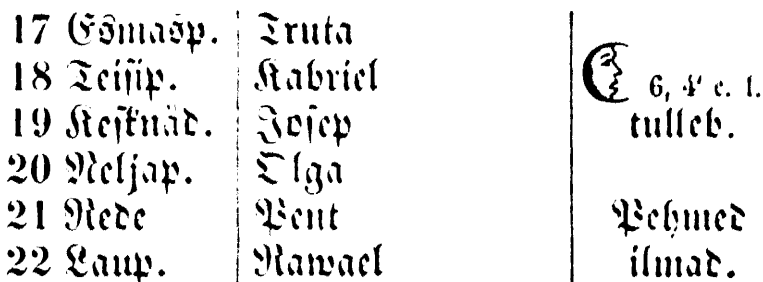 17 Esmasp. Truta
18 Teisip. Kabriel 6, 4' e. l.
19 Kesknäd. Josep tulleb.
20 Neljap. Olga
21 Rede Pent Pehmed
22 Laup. Rawael ilmad.